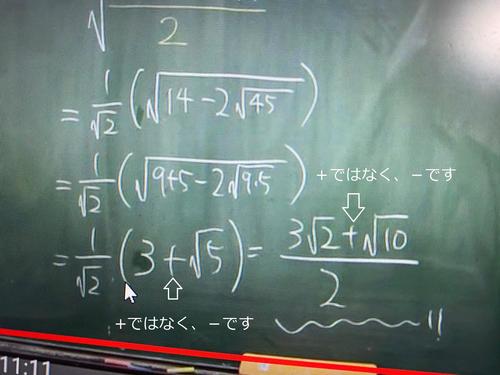 √‾ 2
= 1/√2 (√(14-2√45))
= 1/√2 (√(9+5-2√(9·5)))
+ではなく、-です
= 1/√2 (3+√5) = (3√2+√10)/2
+ではなく、-です
11:11